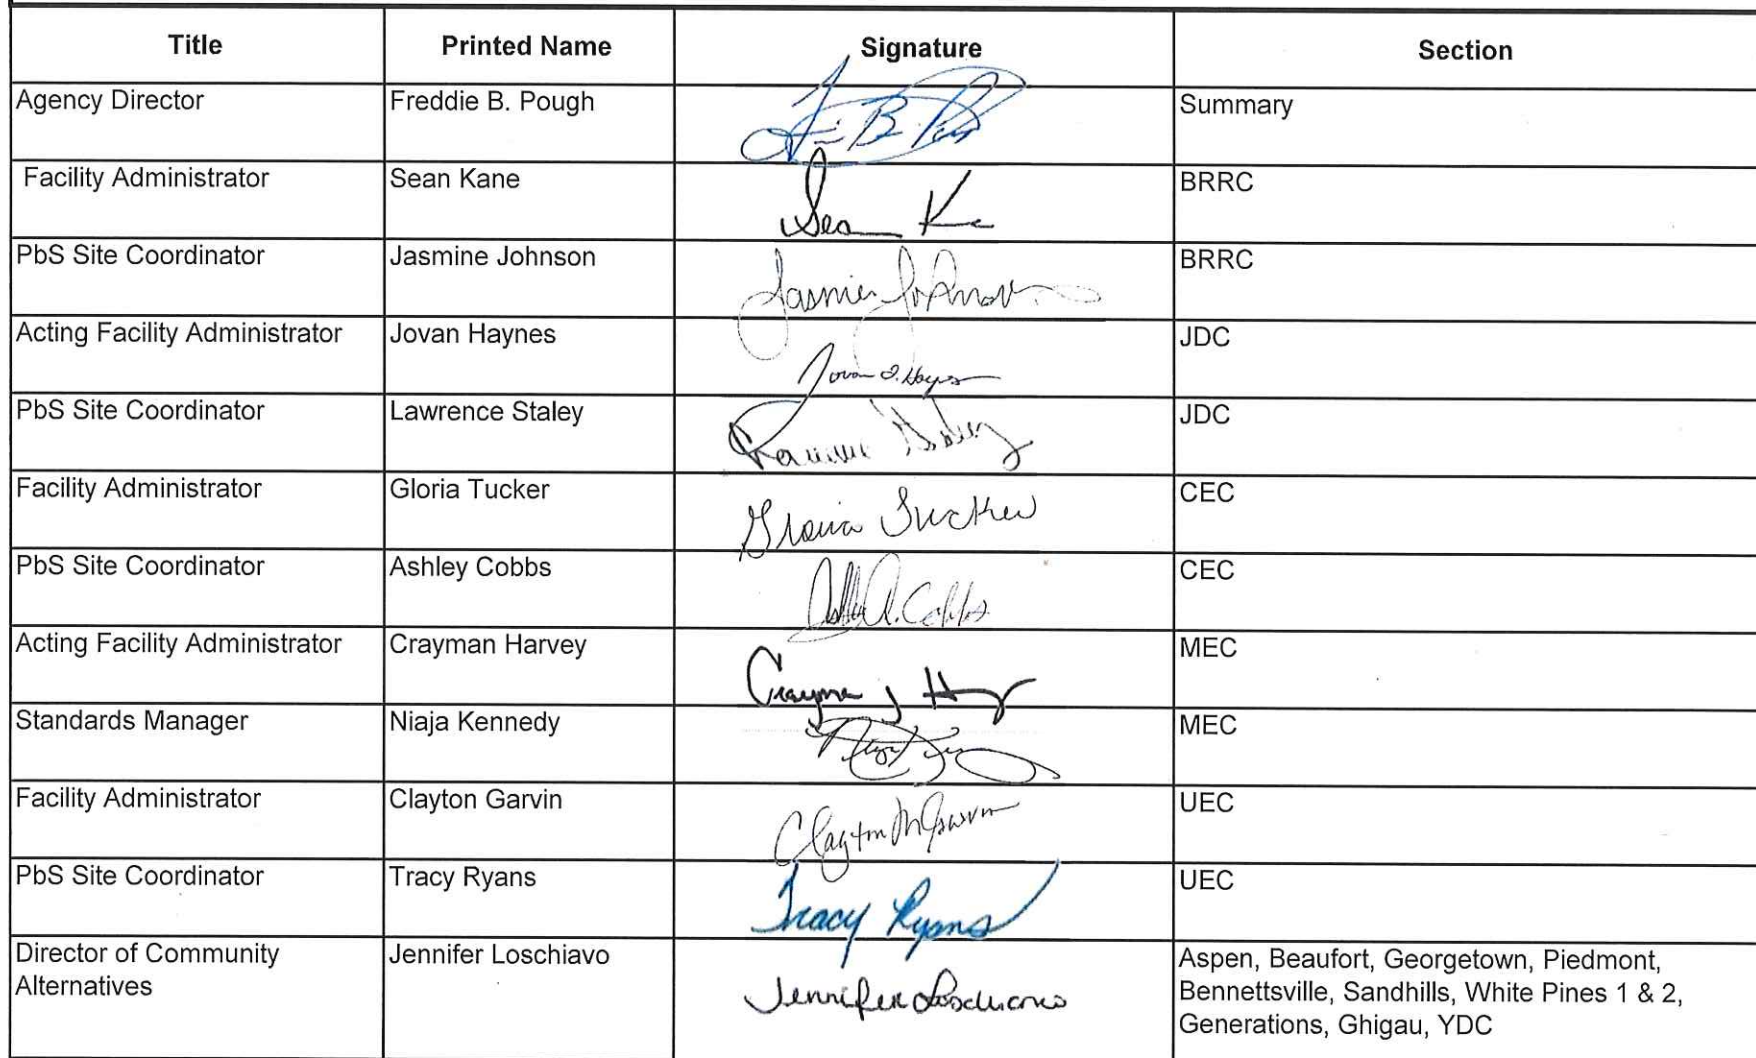 Title Printed Name Signature Section
Agency Director Freddie B. Pough Summary
Facility Administrator Sean Kane Sean K BRRC
PbS Site Coordinator Jasmine Johnson BRRC
Acting Facility Administrator Jovan Haynes JDC
PbS Site Coordinator Lawrence Staley JDC
Facility Administrator Gloria Tucker Gloria Tucker CEC
PbS Site Coordinator Ashley Cobbs A. Cobbs CEC
Acting Facility Administrator Crayman Harvey MEC
Standards Manager Niaja Kennedy MEC
Facility Administrator Clayton Garvin Clayton M Garvin UEC
PbS Site Coordinator Tracy Ryans Tracy Ryans UEC
Director of Community Jennifer Loschiavo Jennifer Loschiavo Aspen, Beaufort, Georgetown, Piedmont,
Alternatives Bennettsville, Sandhills, White Pines 1 & 2,
Generations, Ghigau, YDC